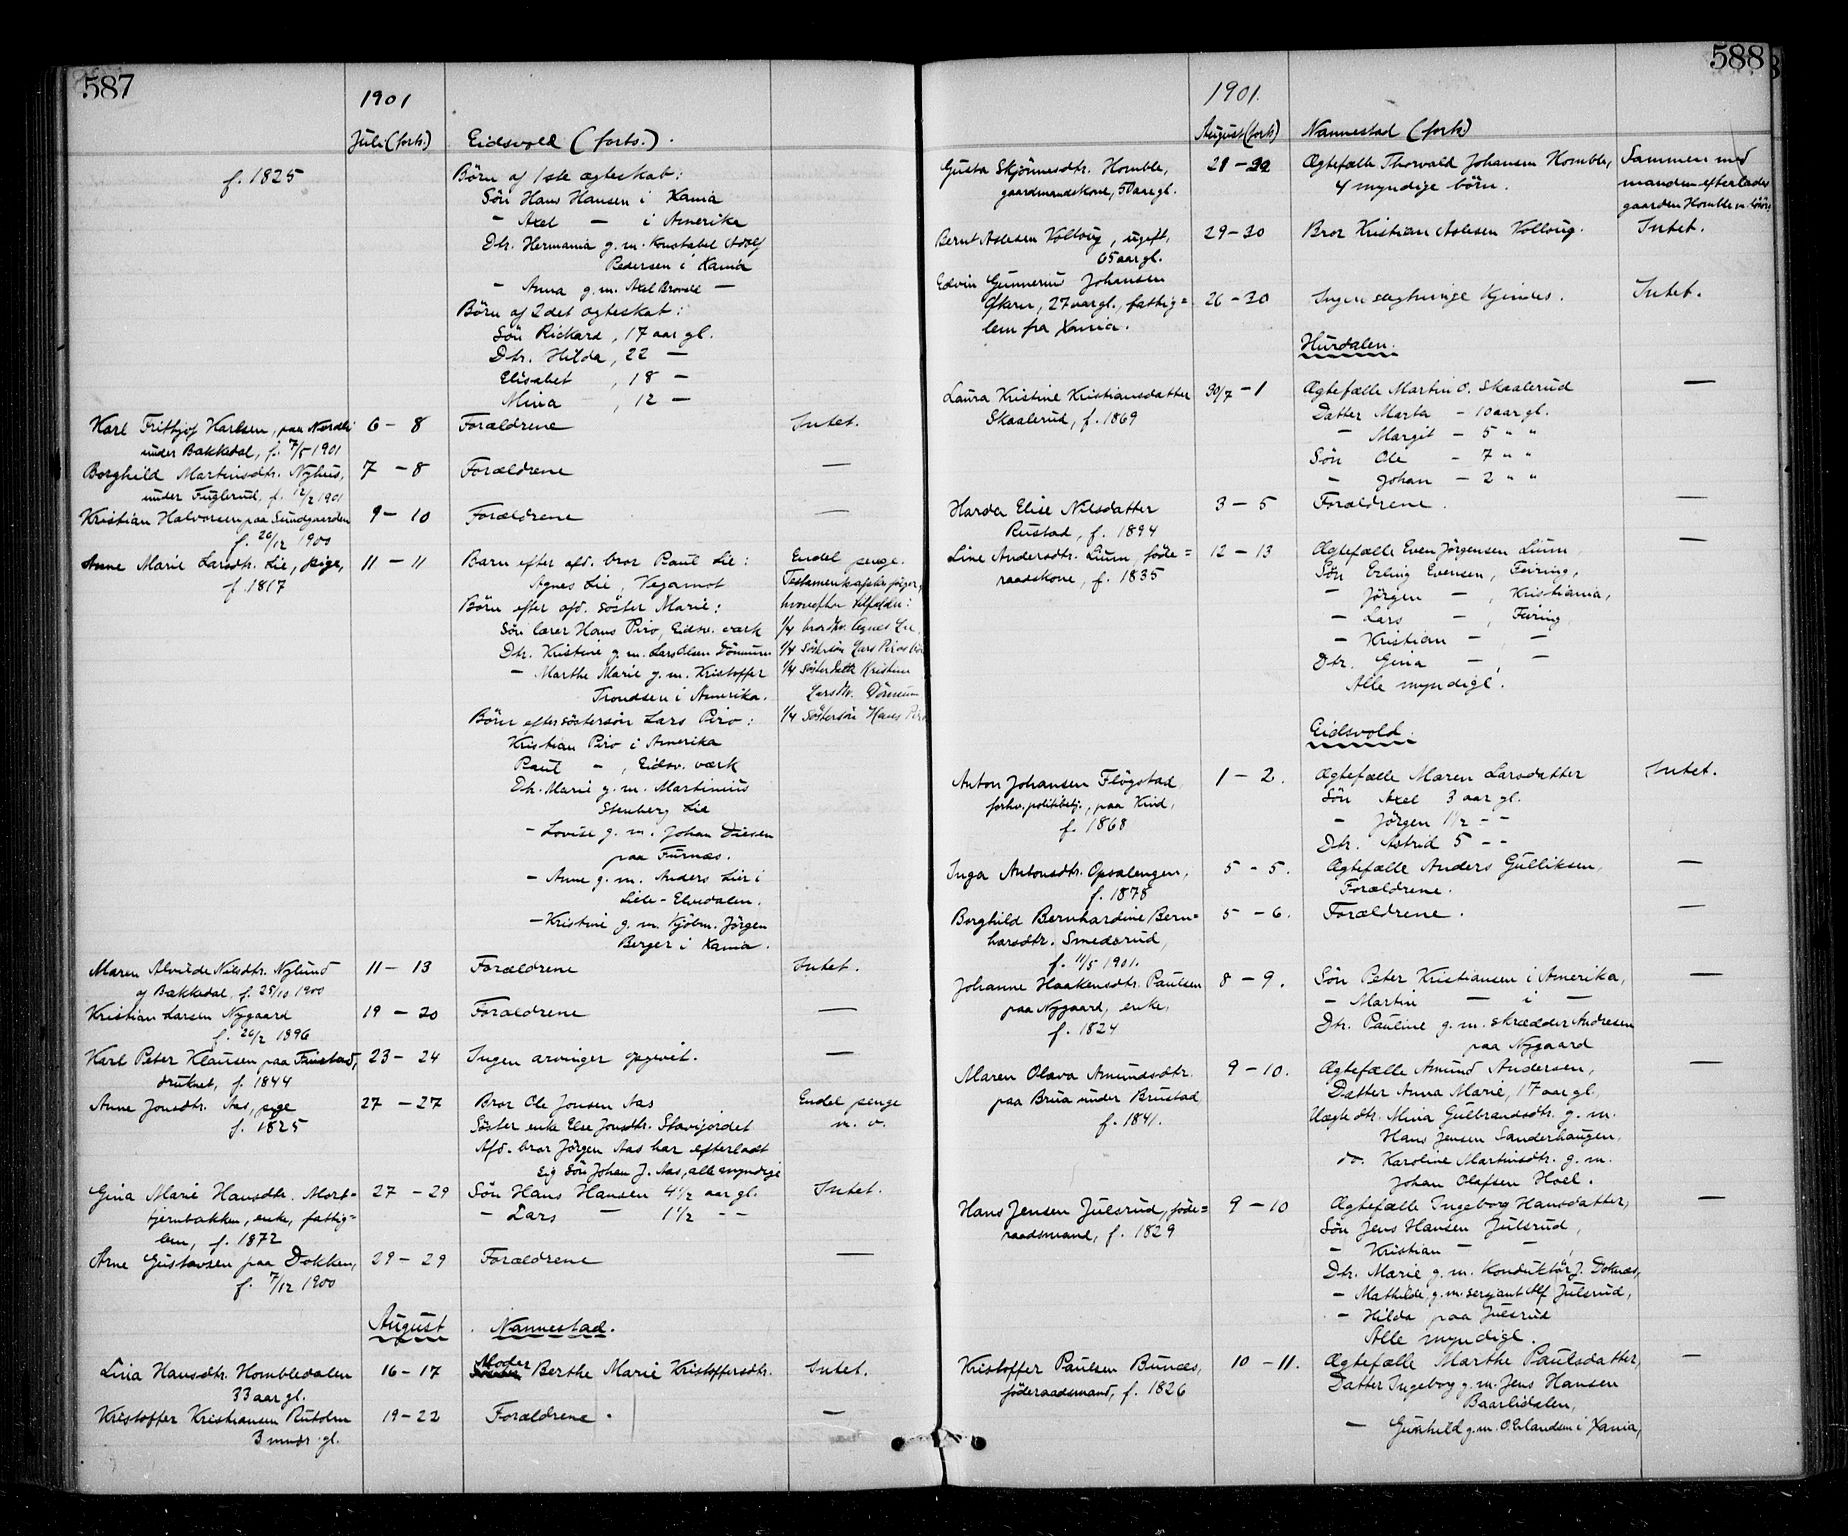 587
1901
Juli (forts.) Eidsvold (forts.).
f. 1825 Børn af 1ste ægteskab:
Søn Hans Hansen i Xania
— Axel — i Amerika
Dtr. Hermania g. m. Konstabel Adolf
Pedersen i Xania
— Anna g. m. Axel —
Børn af 2det ægteskab:
Søn Rickard, 17 aar gl.
Dtr. Hilda, 22 —
Elisabet, 18 —
Mina, 12 —
Karl Fritbjof Karlsen, paa Nordli 6 – 8 Forældrene Intet.
under Bakkedal, f. 7/5 1901
Borghild Martinsdtr. Nyhus, 7 – 8 Forældrene —
under Fuglerud, f. 12/2 1901
Kristian Halvorsen paa Sundgaarden 9 – 10 Forældrene —
f. 26/12 1900
Anne Marie Larsdtr. Lie, pige, 11 – 11 Barn efter afd. bror Paul Lie: Endel penge.
f. 1817 Agnes Lie, Vejamot
Børn efter afd. søster Marie: hvorefter tilfalder:
Søn lærer Hans Piro, Eidsv. værk 1/4 Agnes Lie
Dtr. Kristine g. m. Lars Olsen Dønnum 1/4 Søstersøn Lars Piros
— Marthe Marie g. m. Kristoffer 1/4 Søsterdatter Kristine
Trondsen i Amerika. Dønnum
Børn efter søstersøn Lars Piro: 1/4 Søstersøn Hans Piro
Kristian Piro i Amerika
Paul — , Eidsv. værk
Dtr. Marie g. m. Martinius
Stenberg Lie
— Lovise g. m. Johan Diesen
paa Furnæs.
— Anne g. m. Anders Lier i
Lille-Elvedalen.
— Kristine g. m. Kjølm. Jørgen
Berger i Xania.
Maren Alvilde Nilsdtr. Nylund 11 – 13 Forældrene Intet.
af Bakkedal, f. 25/10 1900
Kristian Larsen Nygaard 19 – 20 Forældrene —
f. 26/2 1896
Karl Peter Klausen paa 23 – 24 Ingen arvinger opgivet. —
druknet, f. 1844
Anne Jonsdtr. Aas, pige 27 – 27 Bror Ole Jonsen Aas Endel penge
f. 1825 Søster enke Else Jonsdtr. Stavijordet m. v.
Afd. bror Jørgen Aas har efterladt
sig Søn Johan J. Aas, alle myndige
Gina Marie Hansdtr. Mort- 27 – 29 Søn Hans Hansen 4 1/2 aar gl. Intet.
tjernbakken, enke, fattig- — Lars — 1 1/2 — —
lem, f. 1872
Arne Gustavsen paa Dokken, 29 – 29 Forældrene —
f. 7/12 1900
August. Nannestad.
Lina Hansdtr. Hombledalen 16 – 17 Moder Berthe Marie Kristoffersdtr. Intet.
33 aar gl.
Kristoffer Kristiansen Rutolm 19 – 22 Forældrene. —
3 mndr. gl.
588
1901.
August (forts) Nannestad (forts.)
Gusta Skjønnesdtr. Homble, 28 – Ægtefælle Thorvald Johansen Homble, Sammen med
gaardmandskone, 50 aar gl. 4 myndige børn. manden efterlades
gaarden Homble m. løsøre
Bernt Aslesen Kolloug, ugift, 29 – 30 Bror Kristian Aslesen Kolloug. Intet.
65 aar gl.
Edvin Gunnerius Johansen
27 aar gl., fattig= 26 – 30 Ingen slegtninge kjendes. Intet.
lem fra Xania.
Hurdalen.
Laura Kristine Kristiansdatter 30/7 – 1 Ægtefælle Martin O. Skaalerud —
Skaalerud, f. 1869 Datter Marta – 10 aar gl.
— Margit – 5 " "
Søn Ole – 7 " "
— Johan – 2 " "
Harda Elise Nilsdatter 3 – 5 Forældrene. —
Rustad, f. 1894
Line Andersdtr. Lium, føde= 12 – 13 Ægtefælle Even Jørgensen Lium, —
raadskone, f. 1835 Søn Erling Evensen, Feiring,
— Jørgen — , Kristiania,
— Lars — , Feiring,
— Kristian — , —
Dtr. Gina — , —
Alle myndige.
Eidsvold.
Anton Johansen Fløgstad, 1 – 2. Ægtefælle Maren Larsdatter Intet.
forhv. politibetj., paa Kind, Søn Axel 3 aar gl.
f. 1868 — Jørgen 1 1/2 — —
Dtr. Astrid 5 — —
Inga Antonsdtr. Opsalengen, 5 – 5. Ægtefælle Anders Gulliksen, —
f. 1878 Forældrene.
Borghild Bernhardine Bern= 5 – 6. Forældrene. —
hardtr. Smedsrud,
f. 11/5 1901.
Johanne Haakensdtr. Paulsen 8 – 9. Søn Peter Kristiansen i Amerika, —
paa Nygaard, enke, — Martin — i —
f. 1824 Dtr. Pauline g. m. skrædder Andresen
paa Nygaard
Maren Olava Amundsdtr. 9 – 10. Ægtefælle Amund Andersen, —
paa Brua under Brustad Datter Anna Marie, 17 aar gl,
f. 1841. Uægte dtr. Mina Gulbrandsdtr. g. m.
Hans Jensen Sanderhaugen,
do. Karoline Martinsdtr. g. m.
Johan Olafsen Hoel.
Hans Jensen Julsrud, føde= 9 – 10 Ægtefælle Ingeborg Hansdatter, —
raadsmand, f. 1829 Søn Jens Hansen Julsrud,
— Kristian — — ,
Dtr. Marie g. m. Konduktør J. Doknæs,
— Mathilde, g. m. sersjant Alf Julsrud,
— Hilda paa Julsrud
Alle myndige.
Kristoffer Paulsen Bunæs, 10 – 11. Ægtefælle Marthe Paulsdatter, —
føderaadsmand, f. 1826 Datter Ingeborg g. m. Jens Hansen
Baarlidalen,
— Gunhild g. m. O. Erlandsen i Xania,